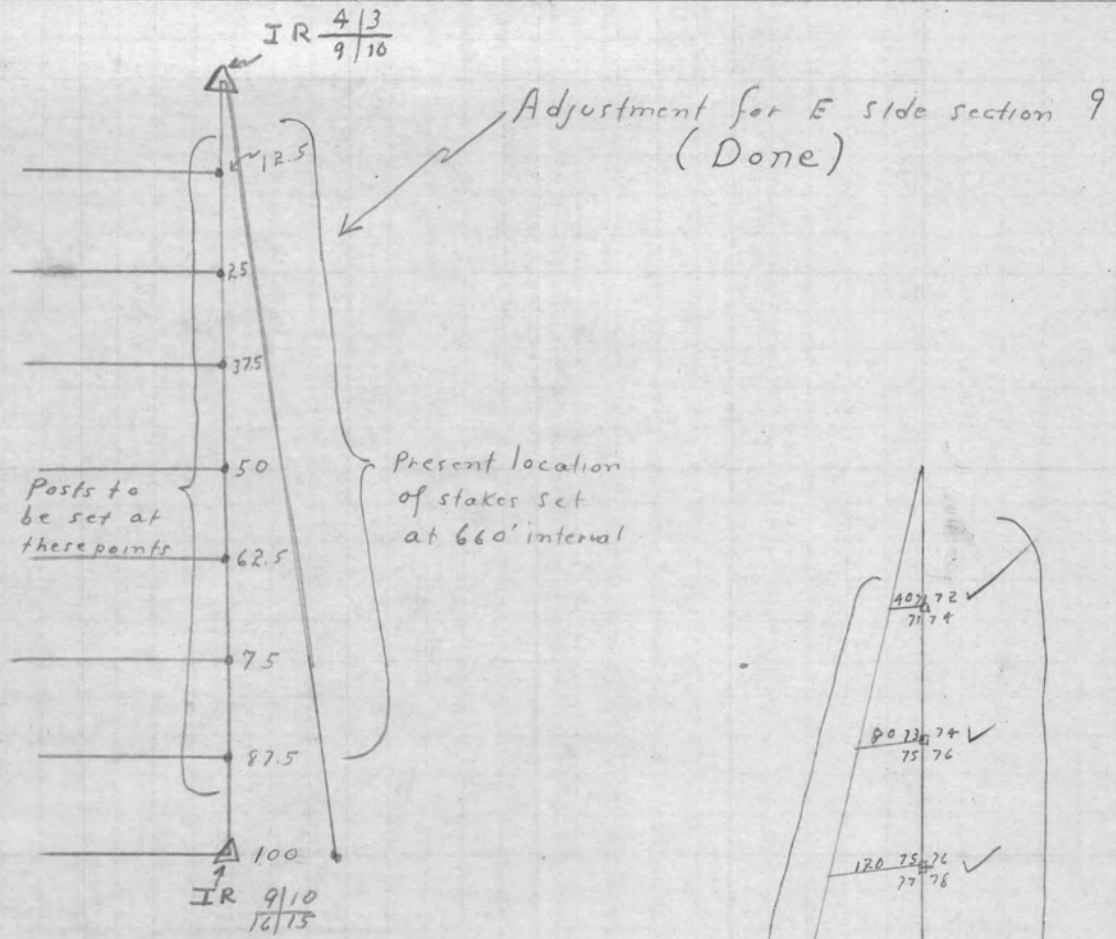 IR 4|3
9|10
Adjustment for E side section 9
(Done)
12.5
25
37.5
50
Posts to
be set at
these points
Present location
of stakes set
at 660' interval
62.5
75
87.5
100
IR 9|10
16|15
40 72
71 74
80 73 74
75 76
120 75 76
77 78